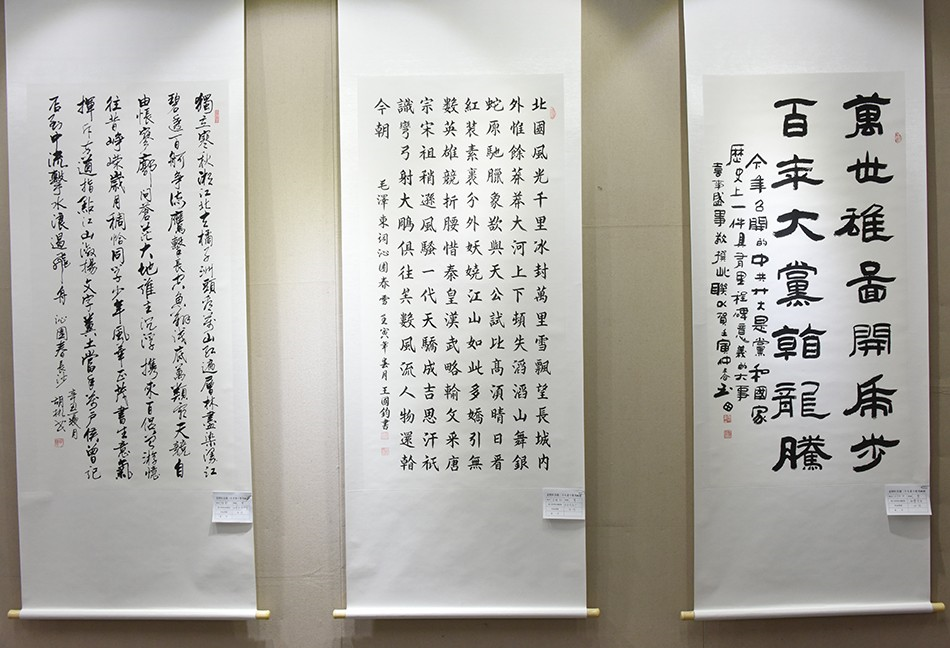 萬世雄圖開虎步
百年大黨翰龍騰
今年召開的中共廿大是黨和國家
歷史上一件具有里程碑意義的大事
喜事盛事敬撰此聯以賀壬寅仲春
北國風光千里冰封萬里雪飄望長城內
外惟餘莽莽大河上下頓失滔滔山舞銀
蛇原馳臘象欲與天公試比高須晴日看
紅裝素裹分外妖嬈江山如此多嬌引無
數英雄競折腰惜秦皇漢武略輸文采唐
宗宋祖稍遜風騷一代天驕成吉思汗祇
識彎弓射大鵰俱往矣數風流人物還看
今朝
毛澤東詞沁園春雪壬寅年春月王國鈞書
獨立寒秋湘江北去橘子洲頭看萬山紅遍層林盡染漫江
碧透百舸爭流鷹擊長空魚翔淺底萬類霜天競自
由悵寥廓問蒼茫大地誰主沉浮攜來百侶曾遊憶
往昔崢嶸歲月稠恰同學少年風華正茂書生意氣
揮斥方遒指點江山激揚文字糞土當年萬戶侯曾記
否到中流擊水浪遏飛舟沁園春長沙